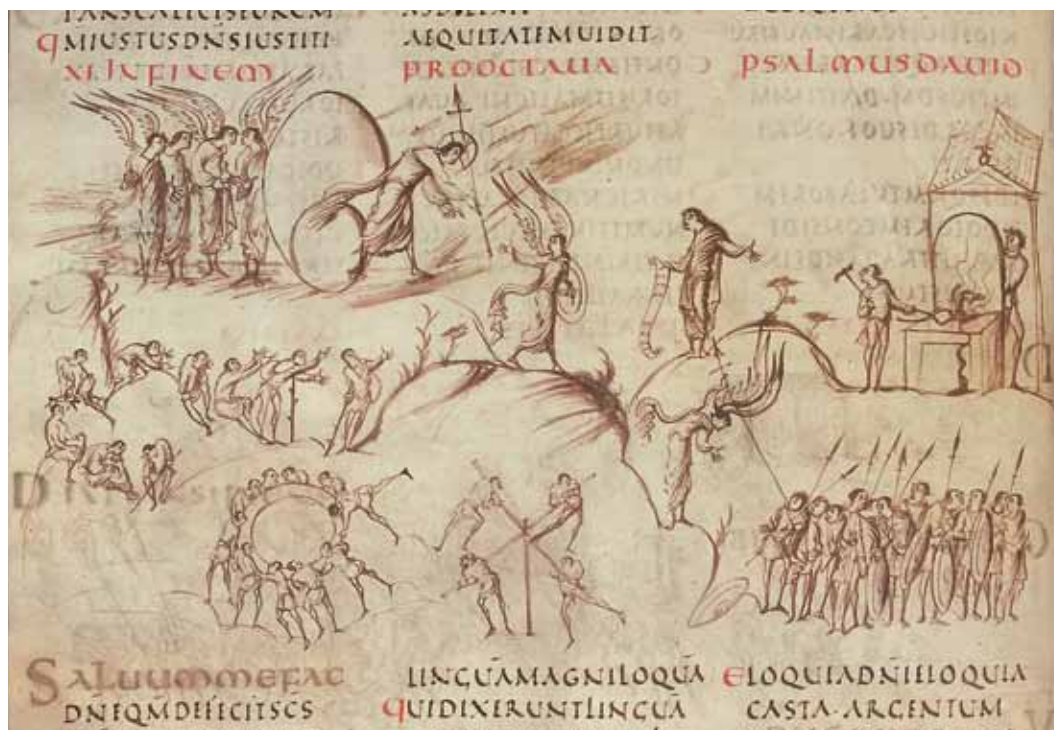 PARSCALICISEORUM
QMIUSTUSDN̄SIUSTITI
ASDILEXIT
AEQUITATEMUIDIT
XI. INFINEM PROOCTAUA PSALMUSDAUID
SALUUMMEFAC
DNEQMDEFECITSCS
LINGUĀMAGNILOQUĀ
QUIDIXERUNTLINGUĀ
ELOQUIADN̄IELOQUIA
CASTA·ARGENTUM